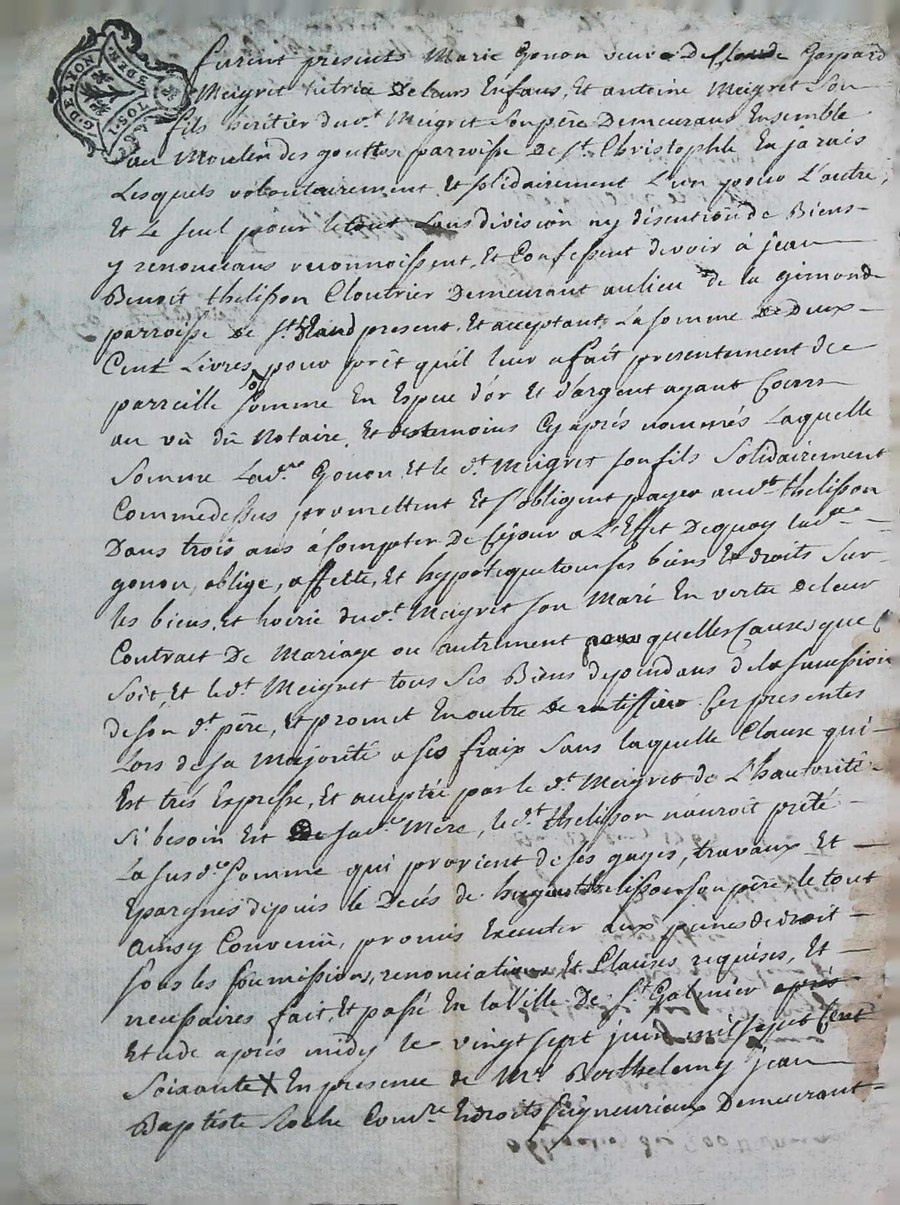 G. DE LYON
furent presents Marie Gonon veuve Deffunde Gaspard
Meigret tutrice Deleurs Enfans, Et antoine Meigret Son
fils héritier du d.t Meigret Son père Demeurans Ensemble
au Moulin des gouttes parroisse De St. Christophle En jarais
Lesquels volontairement Et solidairement L'un pour L'autre,
Et Le seul pour letout Sans division ny discution de Biens
y renoncans reconnoissent, Et Confessent devoir à jean
Benoit thelisson Cloutrier Demeurant aulieu de la gimond
parroisse De St. present, Et acceptant, La somme De Deux
Cent Livres pour prêt qu'il leur a fait presentement de
parreille Somme En Espece d'or Et d'argent ayant Cours
au vû du Notaire, Et destemoins Cy après nommés Laquelle
Somme Lad.e Gonon, Et le d.t Meigret son fils Solidairement
Commedessus promettent Et s'obligent payer aud.t thelisson
Dans trois ans à Compter De Cejour a L'Effet Dequoy lad.e
gonon, oblige, affecte, Et hypoteque tous ses biens Et droits Sur
les biens, et hoirie du d.t Meigret son Mari En vertu de leur
Contract De Mariage ou autrement pour quelles Causes que C
Soit, Et le d.t Meigret tous Ses Biens dependans dela sucession
deson d.t père, Et promet Enoutre De rattiffier Ces presentes
Lors desa Majorité a ses fraix Sans laquelle Clause qui
Est trés Expresse, Et aceptée par le d.t Meigret de L'hautorité
Si besoin Est De sa d.e Mere, le d.t thelisson n'auroit prêté
La susd.e Somme qui provient de ses gages, travaux Et
Epargnes depuis le Decés de thelisson son père, le tout
ainsy Convenu, promis Executer aux peines de droit
sous les soumissions, renonciations, Et Clauses requises, Et
necessaires fait, Et passé En la Ville De St. Galmier après
Etude après midy le vingt sept juin mil sept Cent
Soixante X En presence de Me. Berthelemy jean
Baptiste Roche Com.re Endroits Seigneuriaux Demeurant